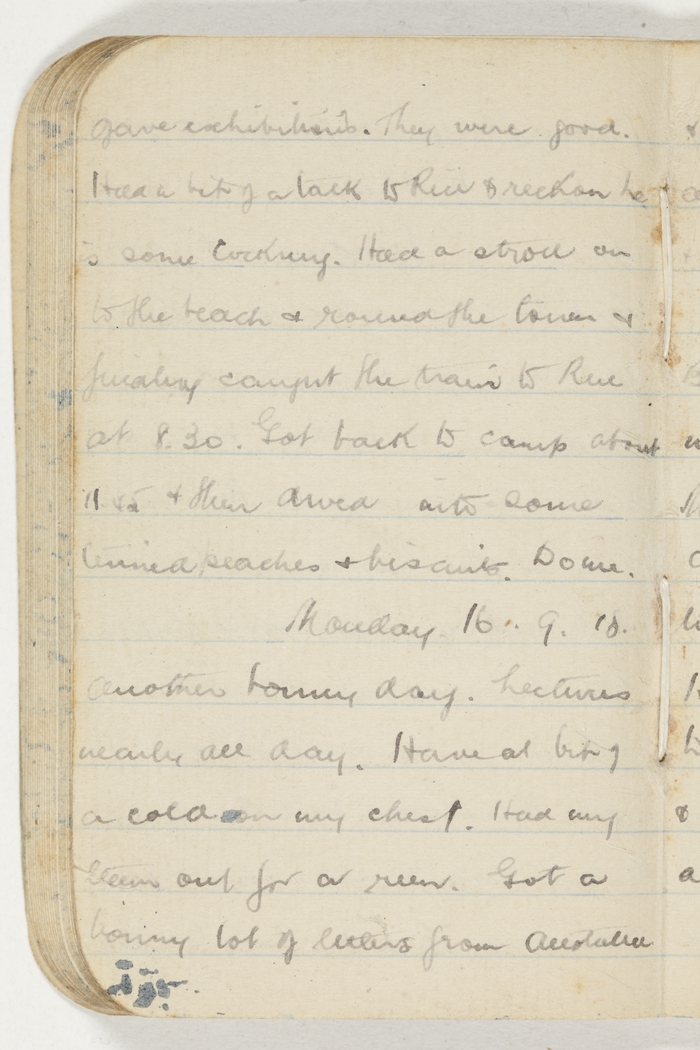 gave exhibitions. They were good.
Had a bit of a talk to Rice & reckon he
is some Cockney. Had a stroll on
to the beach & round the town &
finally caught the train to Rue
at 8.30. Got back to camp about
11.45 & then dived into some
tinned peaches & biscuits. Dome.
Monday 16. 9. 18.
Another bonny day. Lectures
nearly all day. Have at bit of
a cold on my chest. Had my
team out for a run. Got a
bonny lot of letters from Australia